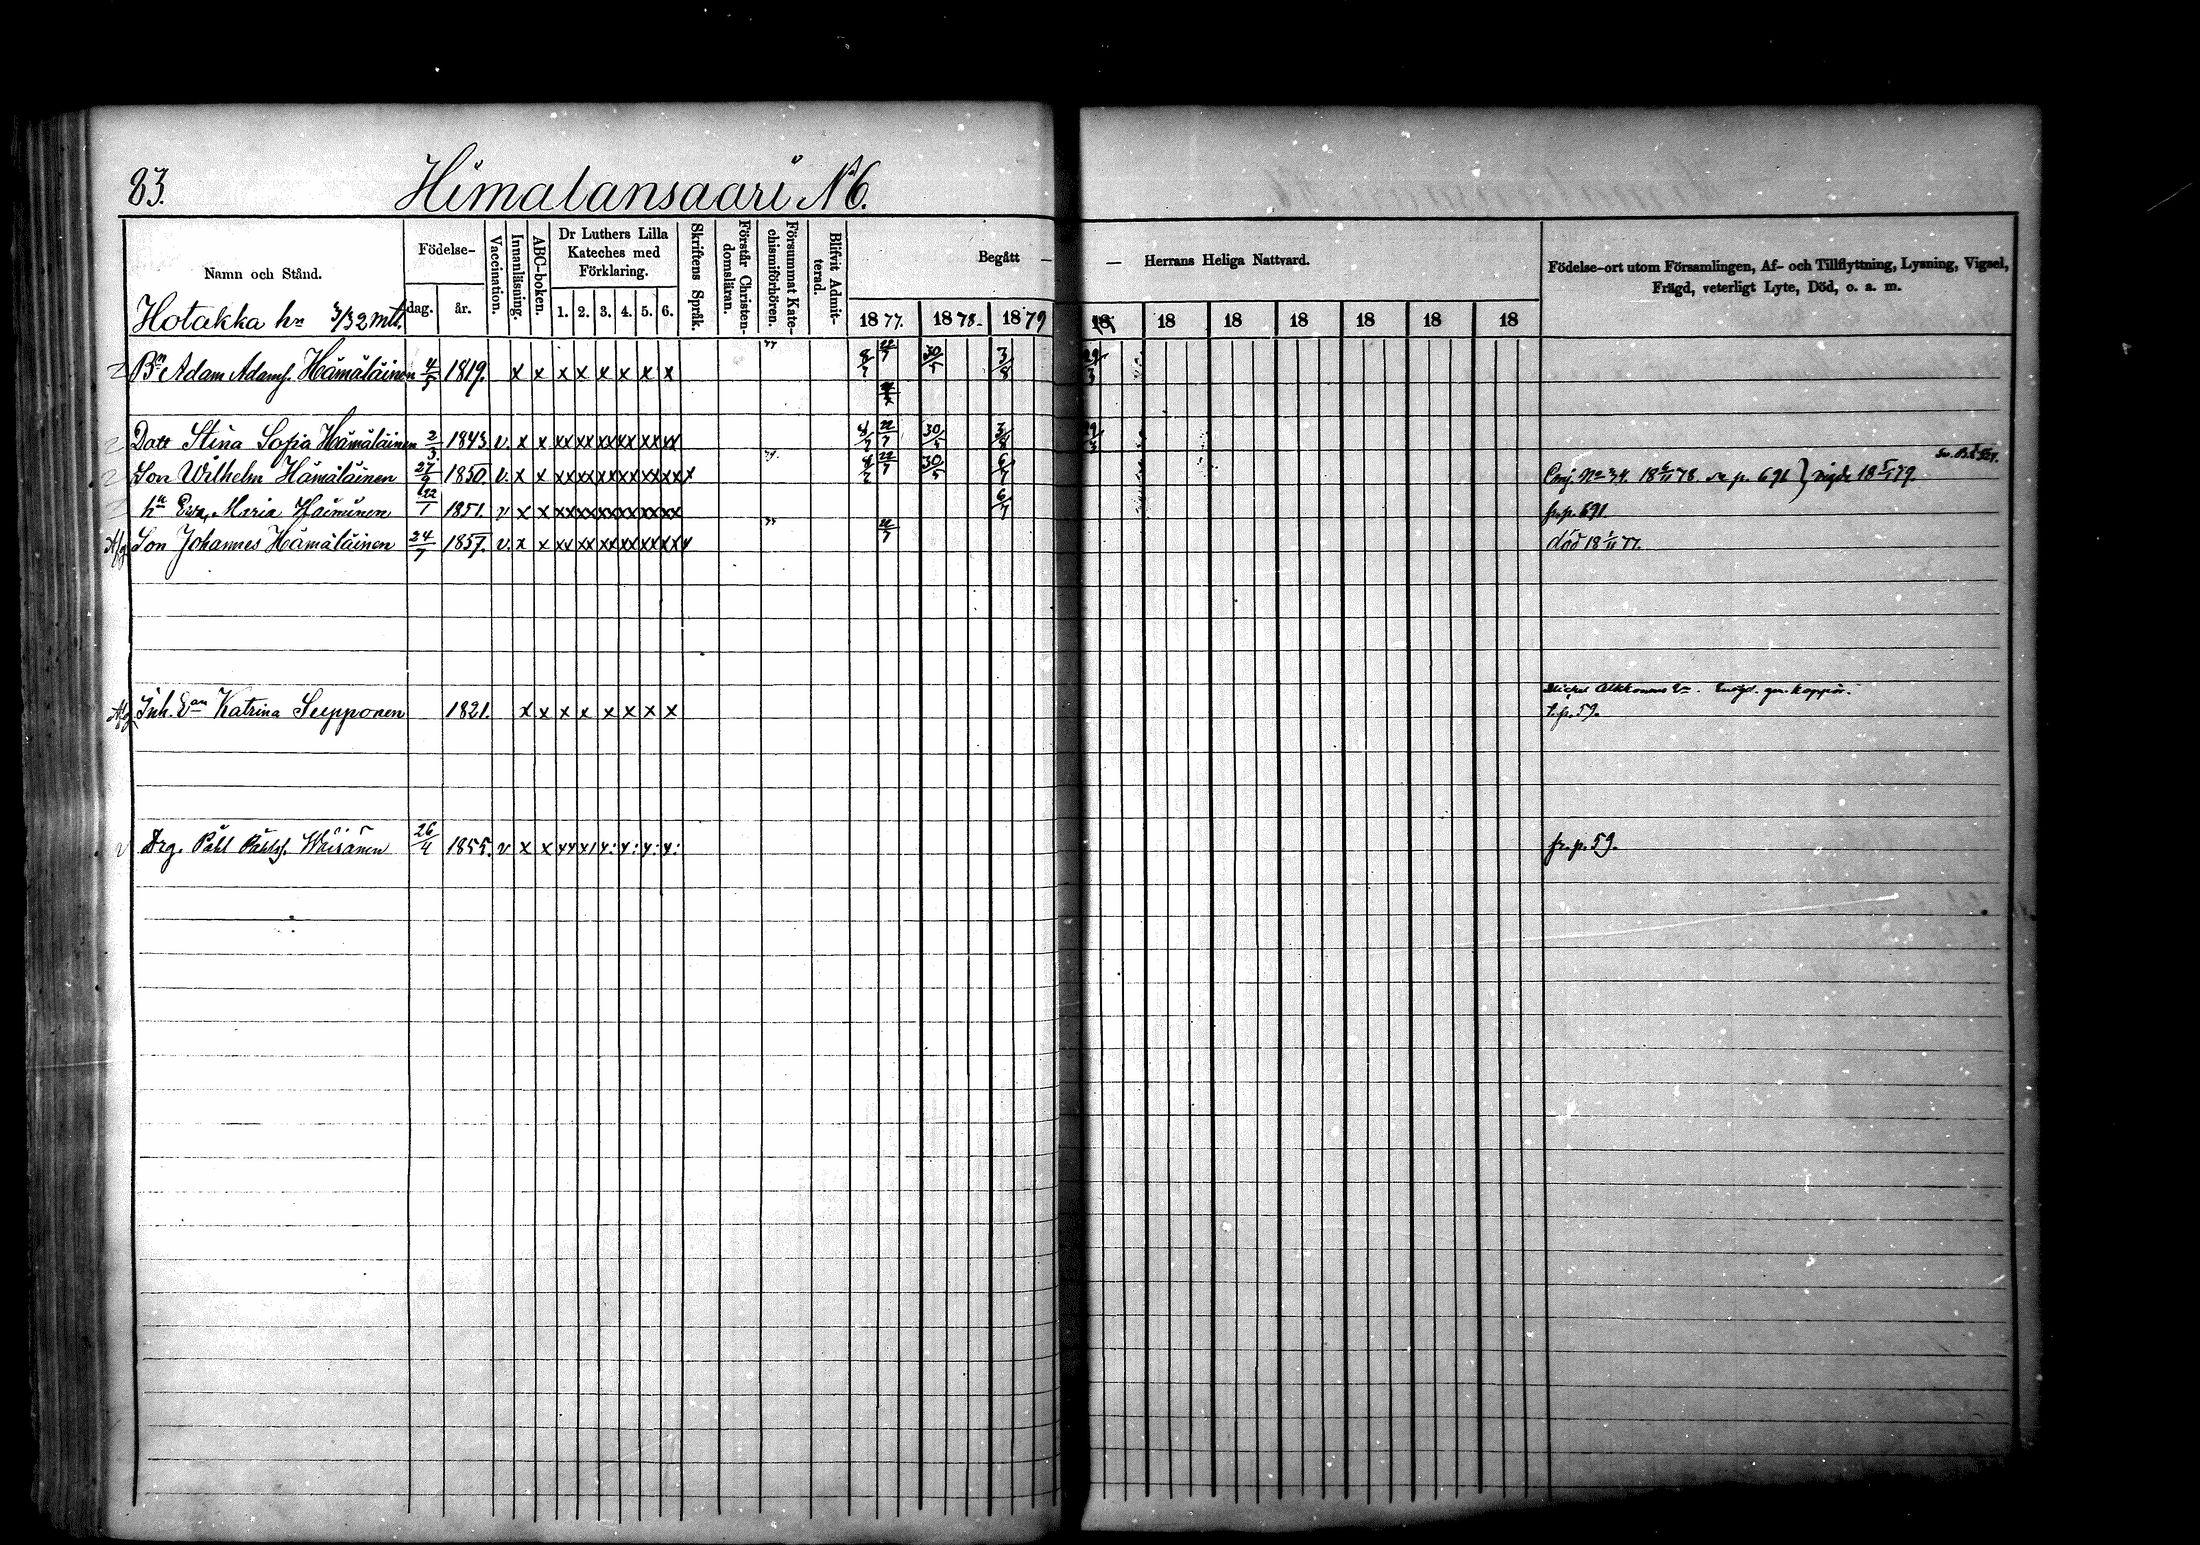 83.
Himalansaari № 6.
Namn och Stånd.
Födelse-
dag.
år.
Vaccination.
Innanläsning.
ABC-boken.
Dr Luthers Lilla
Kateches med
Förklaring.
1. 2. 3. 4. 5. 6.
Skriftens Språk.
Förstår Christen-
domsläran.
Försummat Kate-
chismiförhören.
Blifvit Admit-
terad.
Begått —
— Herrans Heliga Nattvard.
1877. 1878. 1879 18 18 18 18 18 18 18
Födelse-ort utom Församlingen, Af- och Tillflyttning, Lysning, Vigsel,
Frägd, veterligt Lyte, Död, o. a. m.
Hotakka hn 3/32 mtl.
Bn Adam Adamss. Hämäläinen 4/5 1819. x x x x x x x x 8/7 22/7 30/5 3/8 29/3
Dott Stina Sofia Hämäläinen 2/3 1843. v. x x xx xx xx xx xx xx 8/7 22/7 30/5 3/8 29/3
Son Wilhelm Hämäläinen 27/9 1850. v. x x xx xx xx xx xx xx x 8/7 22/7 30/5 6/7 No 34. 78. p. 691 } vigde 79.
hu Eva Maria Häiminen 22/1 1851. v x x xx xx xx xx xx xx 6/7 fr. p. 691.
Afg Son Johannes Hämäläinen 24/7 1857. v. x x xx xx xx xx xx xx 22/7 död 77.
Afg Inh. Enn Katrina Seepponen 1821. x x x x x x x x t. p. 59.
Drg. Påhl Påhlss. Wäisänen 26/4 1855. v x x fr. p. 59.